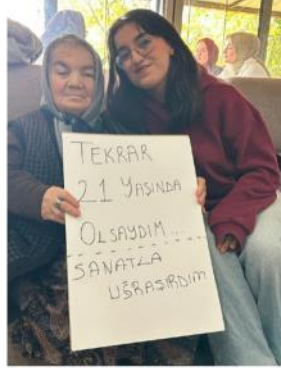 TEKRAR
21 YAŞINDA
OLSAYDIM...
SANATLA
UĞRAŞIRDIM